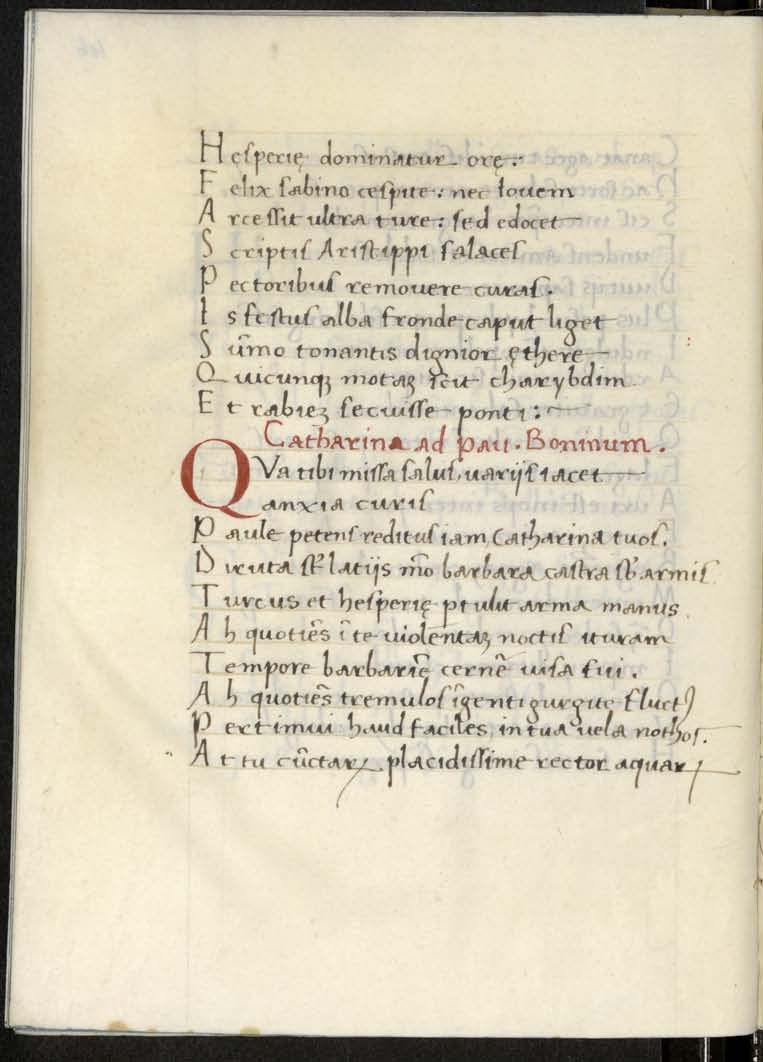 H ęsperię dominatur orę:
F elix sabino cespite: nec Iouem
A rcessit ultra ture: sed edocet
S criptis Aristippi salaces
P ectoribus remouere curas.
I s festus alba fronde caput liget
S um̄o tonantis dignior ęthere
Q uicunqꝫ motaꝫ scit charybdim
E t rabieꝫ secuisse ponti:
Catharina ad Pau. Boninum.
QVa tibi missa salus, uarijs iacet
anxia curis
P aule petens reditus iam Catharina tuos.
D iruta st̄ latijs m̄o barbara castra sb̄ armis
T urcus et hesperię ptulit arma manus
A h quotiēs ī te uiolentaꝫ noctis ituram
T empore barbariē cernē uisa sui.
A h quotiēs tremulos īgenti gurgite fluctꝰ
P ertimui haud faciles, in tua uela nothos.
A t tu cūctaꝝ placidissime rector aquaꝝ